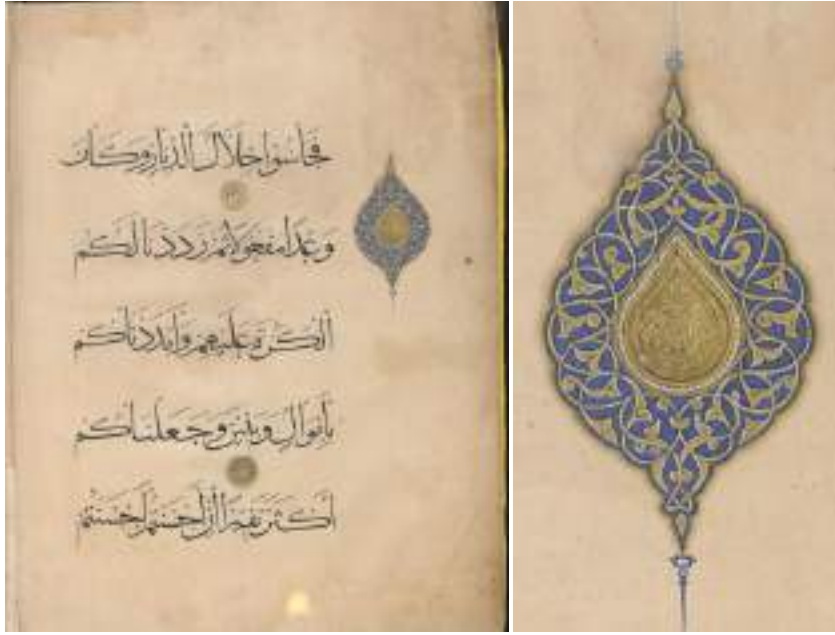 فَجَاسُوا خِلَالَ الدِّيَارِ وَكَانَ
وَعْدًا مَفْعُولًا ثُمَّ رَدَدْنَا لَكُمُ
الْكَرَّةَ عَلَيْهِمْ وَأَمْدَدْنَاكُمْ
بِأَمْوَالٍ وَبَنِينَ وَجَعَلْنَاكُمْ
أَكْثَرَ نَفِيرًا إِنْ أَحْسَنْتُمْ أَحْسَنْتُمْ